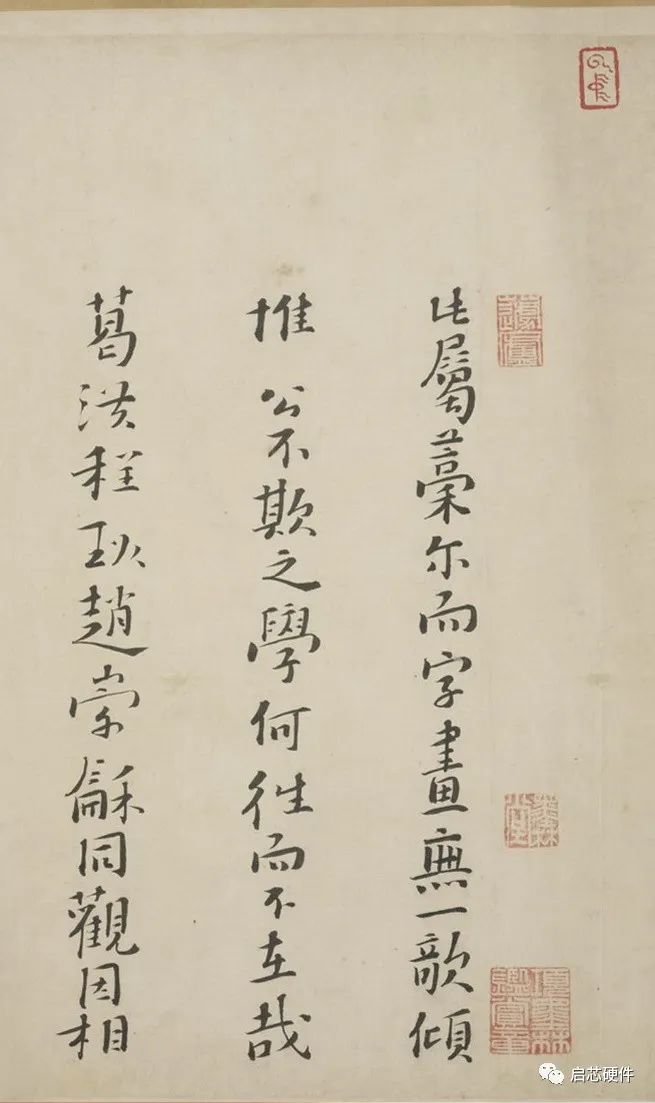 此屬藁尔而字畫無一欹傾
推公不欺之學何往而不在哉
葛洪程珌趙崇龢同觀因相
启芯硬件